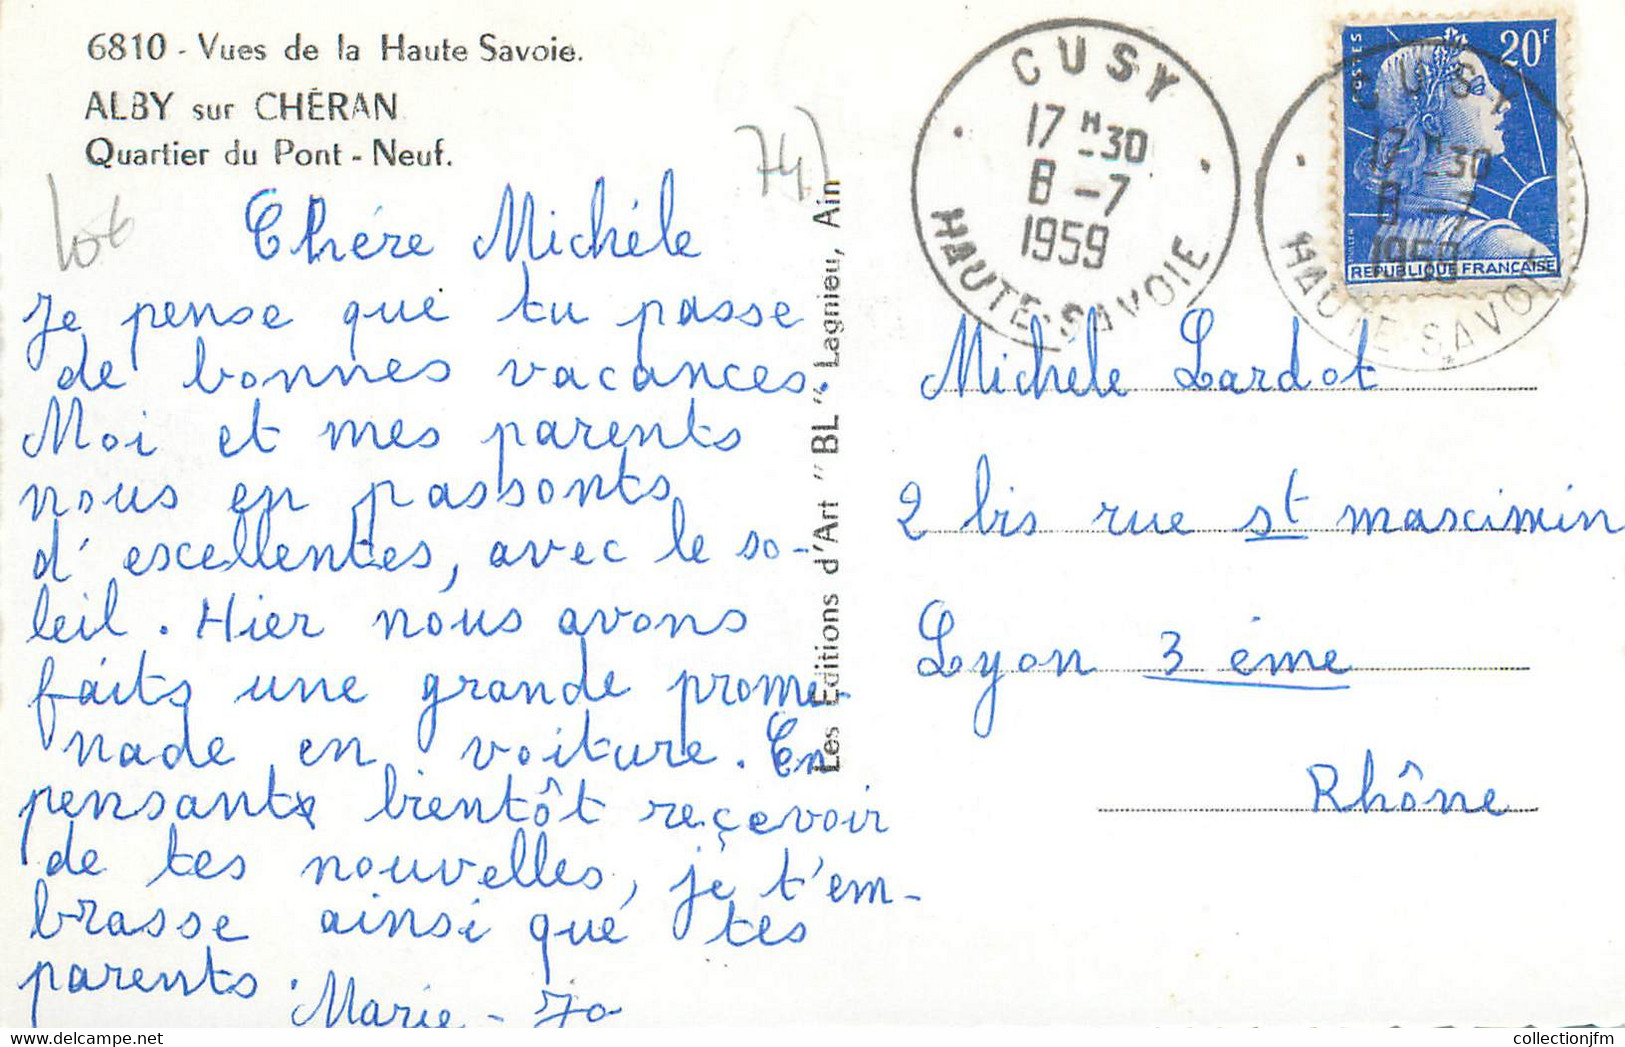 6810 - Vues de la Haute Savoie.
ALBY sur CHÉRAN
Quartier du Pont - Neuf.
74)
Chére Michéle
Je pense que tu passe
de bonnes vacances.
Moi et mes parents
nous en passonts
d'escellentes, avec le so-
leil. Hier nous avons
faits une grande prome-
nade en voiture. En
pensant bientôt reçevoir
de tes nouvelles, je t'em-
brasse ainsi que tes
parents.
Marie-Jo
Les Editions d'Art "BL" - Lagnieu, Ain
CUSY
17 H 30
8 - 7
1959
HAUTE-SAVOIE
POSTES
20F
REPUBLIQUE FRANÇAISE
CUSY
17 H 30
8 - 7
1959
HAUTE-SAVOIE
Michèle Lardot
2 bis rue st mascimin
Lyon 3 éme
Rhône
collectionjfm